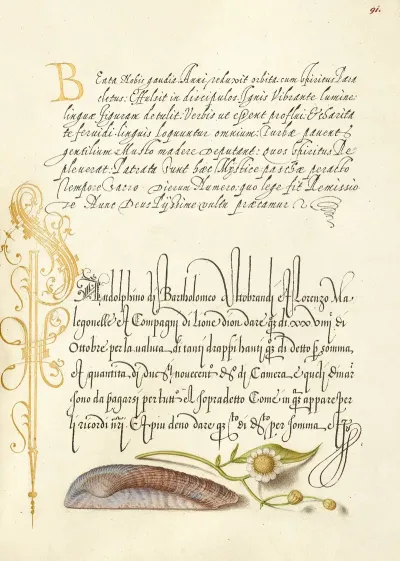 91.
Beata Nobis gaudia Anni reduxit orbita cum spiritus Para
cletus: Effulsit in discipulos. Ignis Vibrante lumine
linguæ figuram detulit. Verbis ut essent proflui, & charita
te fervidi. linguis loquuntur omnium: turbæ pavent
gentilium Musto madere deputant: quos spiritus Re
pleverat. Patrata sunt hæc Mystice: paschæ peracto
tempore, sacro dierum numero: quo lege fit Remissio
te Nunc Deus pijssime vultu præcamur
di Bartholomeo & Lorenzo Ma
legonelle & Compagni di lione dion dare di xxviiij di
Ottobre per la valuta di tanti drappi hauti di detto somma
& quantita di novecento di Camera e quali dinari
sono da pagarsi per tutto il sopradetto Come in appare per
li ricordi & piu deno dare di per somma